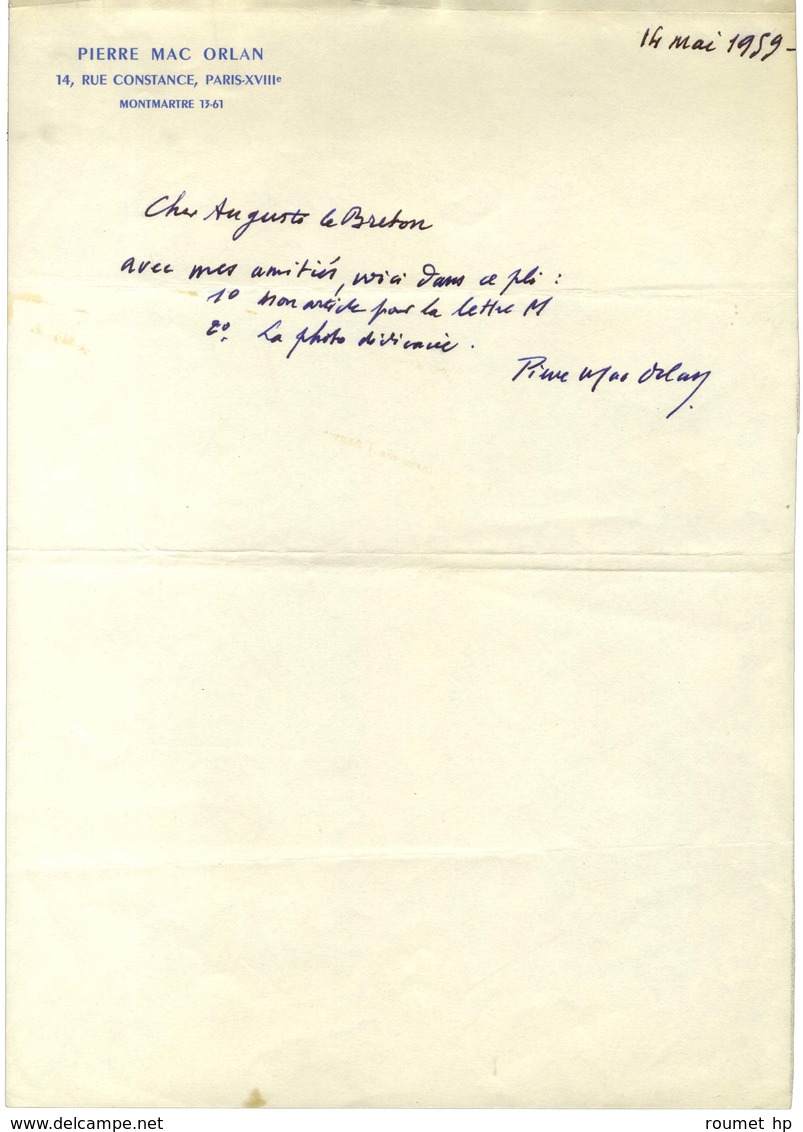 PIERRE MAC ORLAN
14, RUE CONSTANCE, PARIS-XVIIIe
MONTMARTRE 13-61
14 Mai 1959-
Cher Auguste le Breton
avec mes amitiés, voici dans ce pli :
1o Mon article pour la lettre M
2o. La photo dédicacée.
Pierre Mac Orlan
www.delcampe.net
roumet hp